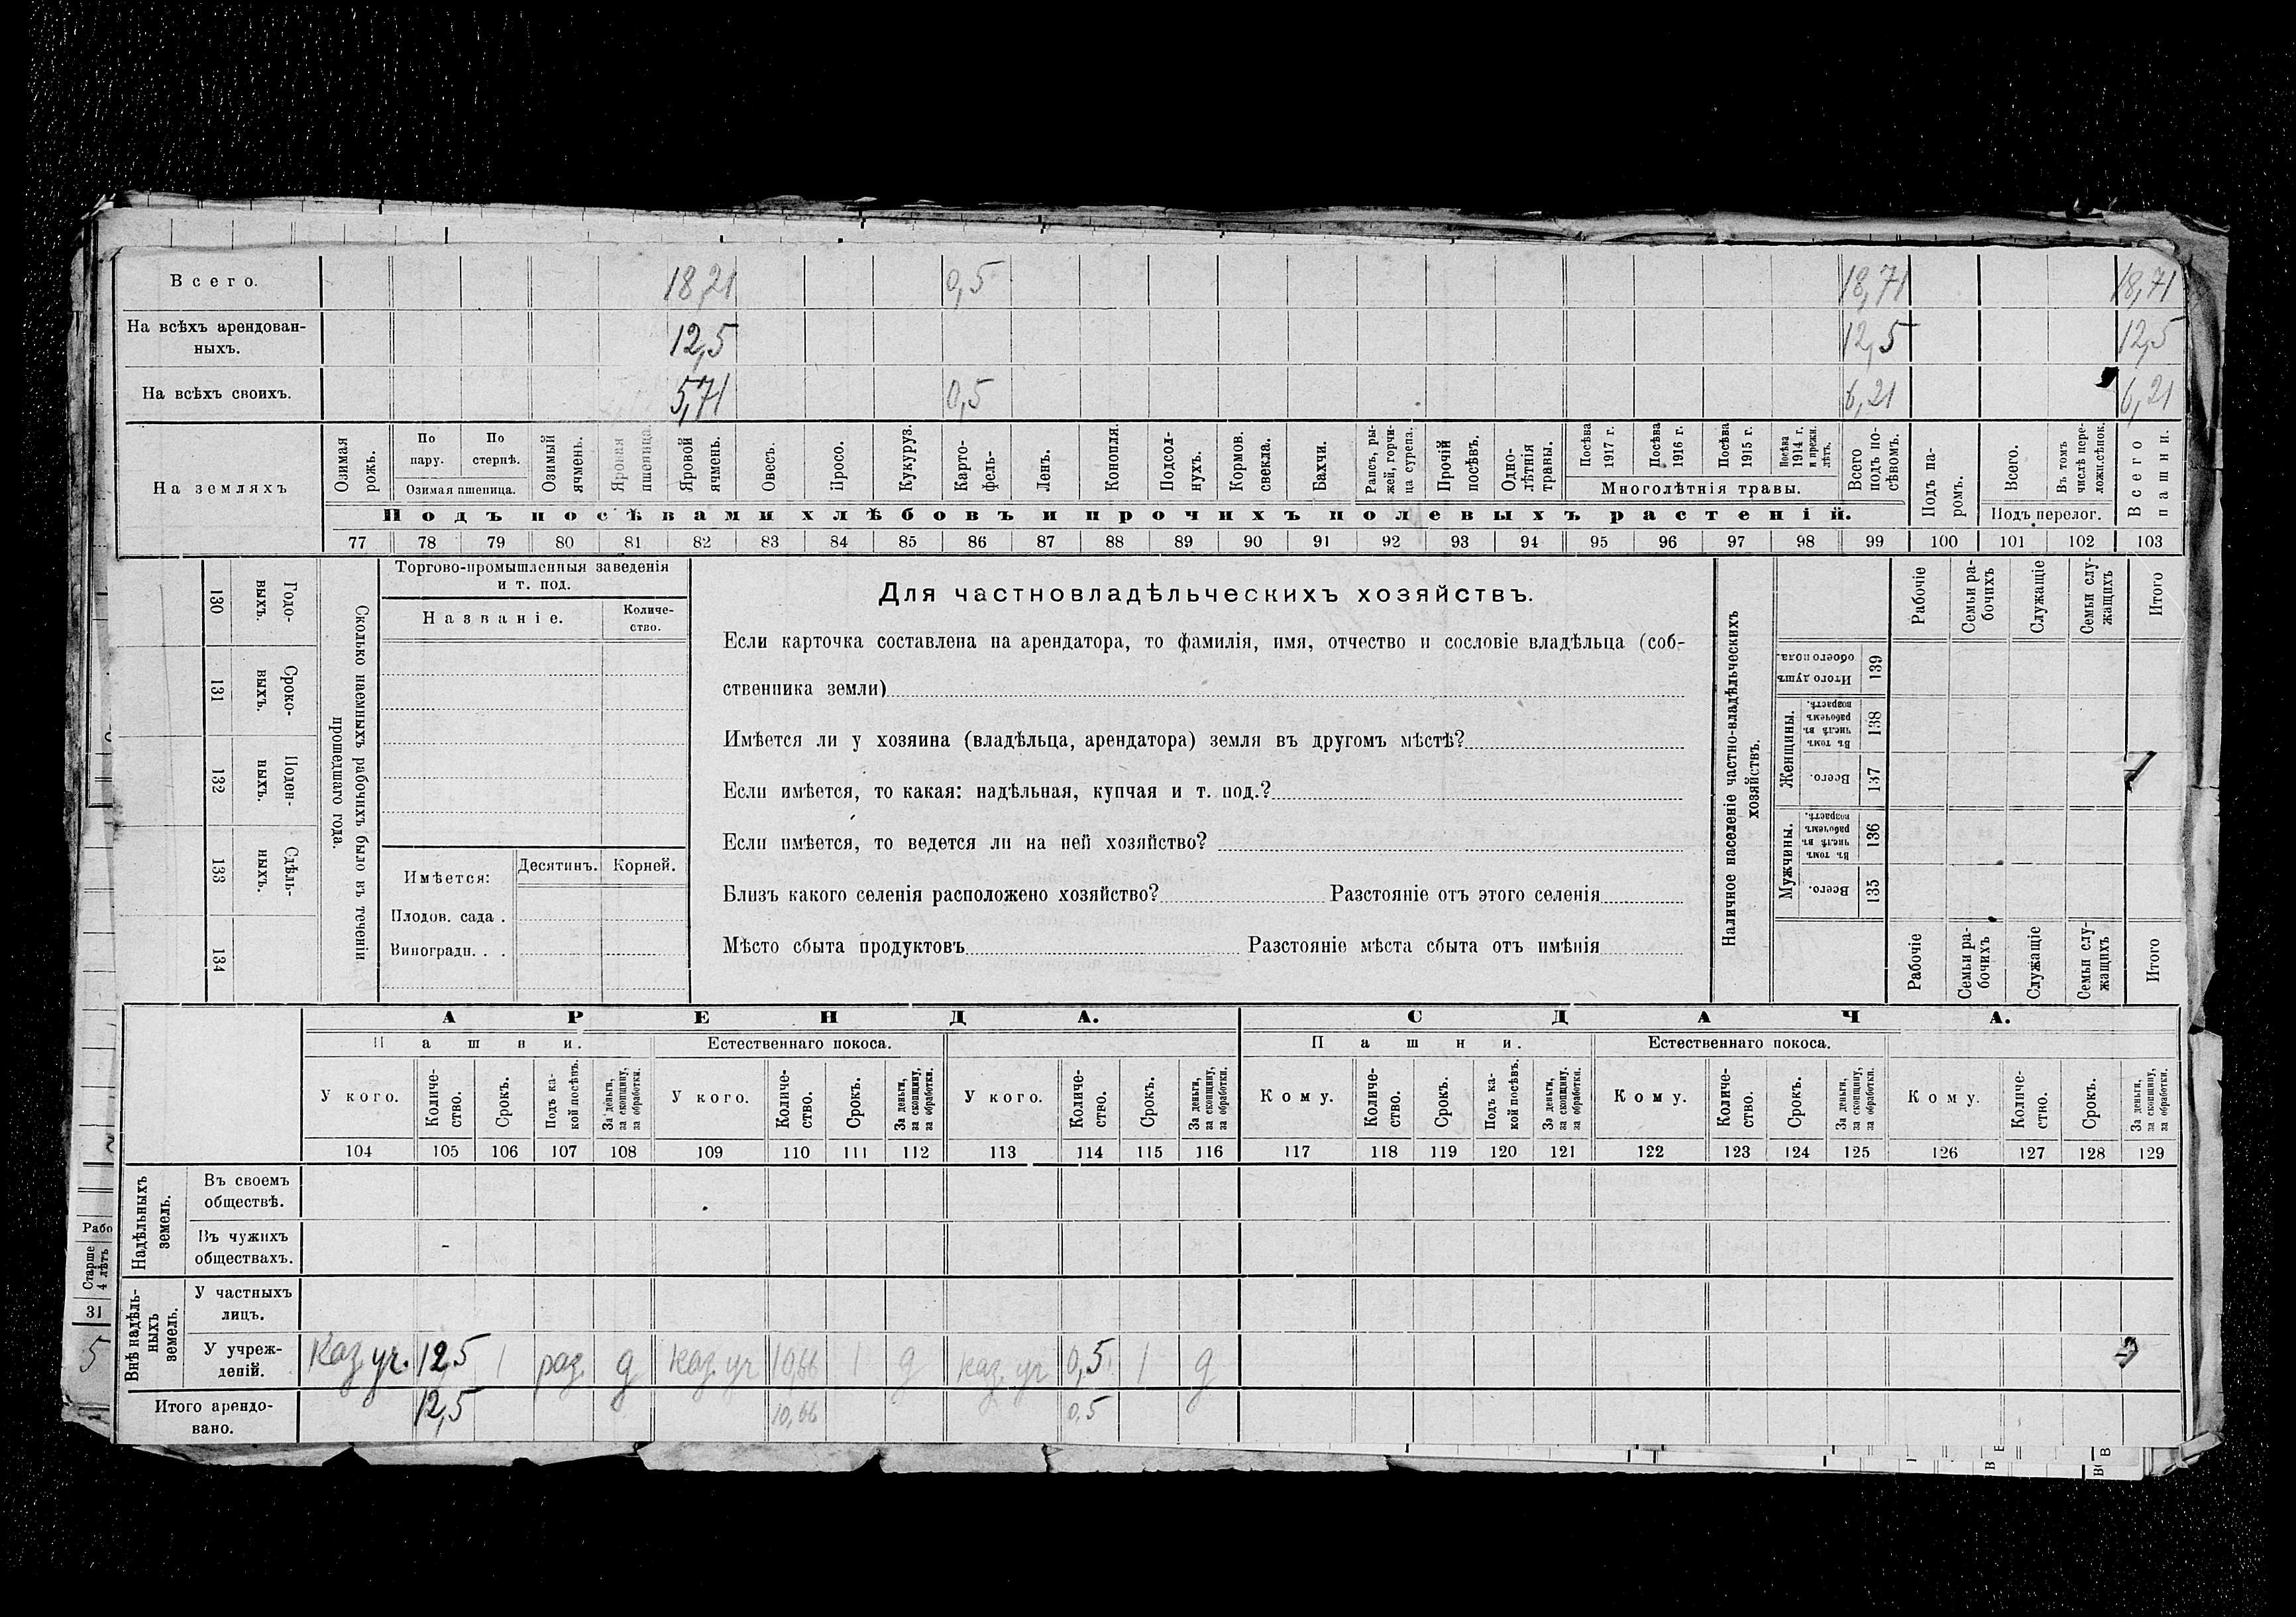 Всего. 18,21 0,5 18,71 18,71
На всѣхъ арендован-
ныхъ. 12,5 12,5 12,5
На всѣхъ своихъ. 5,71 0,5 6,21 6,21
На земляхъ
Озимая рожь.
По пару.
По стернѣ.
Озимая пшеница.
Озимый ячмень.
Яровая пшеница.
Яровой ячмень.
Овесъ.
Просо.
Кукуруз.
Карто-
фель-
Ленъ.
Конопля.
Подсол-
нухъ.
Кормов.
свекла.
Бахчи.
Рапсъ, ры-
жей, горчи-
ца сурепа.
Прочій
посѣвъ.
Одно-
лѣтнія
травы.
Посѣва 1917 г.
Посѣва 1916 г.
Посѣва 1915 г.
Посѣва 1914 г. и прежн. лѣтъ.
Многолѣтнія травы.
Всего
подъ по-
сѣвомъ.
Подъ па-
ромъ.
Всего.
Въ томъ
числѣ пере-
ложн.сѣнок.
Подъ перелог.
Всего
пашни.
Подъ посѣвами хлѣбовъ и прочихъ полевыхъ растеній.
77 78 79 80 81 82 83 84 85 86 87 88 89 90 91 92 93 94 95 96 97 98 99 100 101 102 103
130 Годо-
выхъ.
131 Сроко-
выхъ.
132 Поден-
ныхъ.
133 Сдѣль-
ныхъ.
134
Сколько наемныхъ рабочихъ было въ теченіи
прошедшаго года.
Торгово-промышленныя заведенія
и т. под.
Названіе.
Количе-
ство.
Имѣется:
Десятинъ. Корней.
Плодов. сада .
Виноградн. . .
Для частновладѣльческихъ хозяйствъ.
Если карточка составлена на арендатора, то фамилія, имя, отчество и сословіе владѣльца (соб-
ственника земли)
Имѣется ли у хозяина (владѣльца, арендатора) земля въ другомъ мѣстѣ?
Если имѣется, то какая: надѣльная, купчая и т. под.?
Если имѣется, то ведется ли на ней хозяйство?
Близъ какого селенія расположено хозяйство? Разстояніе отъ этого селенія
Мѣсто сбыта продуктовъ Разстояніе мѣста сбыта отъ имѣнія
Наличное населеніе частно-владѣльческихъ
хозяйствъ.
Рабочіе
Семьи ра-
бочихъ
Служащіе
Семьи слу-
жащихъ
Итого
Итого душъ
обоего пола. 139
Женщины.
Въ томъ
числѣ въ
рабочемъ
возрастѣ. 138
Всего. 137
Мужчины.
Въ томъ
числѣ въ
рабочемъ
возрастѣ. 136
Всего. 135
Рабочіе
Семьи ра-
бочихъ
Служащіе
Семьи слу-
жащихъ
Итого
АРЕНДА. СДАЧА.
Пашни. Естественнаго покоса. Пашни. Естественнаго покоса.
У кого.
Количе-
ство.
Срокъ.
Подъ ка-
кой посѣвъ.
За деньги,
за скопщину,
за обработки.
У кого.
Количе-
ство.
Срокъ.
За деньги,
за скопщину,
за обработки.
У кого.
Количе-
ство.
Срокъ.
За деньги,
за скопщину,
за обработки.
Кому.
Количе-
ство.
Срокъ.
Подъ ка-
кой посѣвъ.
За деньги,
за скопщину,
за обработки.
Кому.
Количе-
ство.
Срокъ.
За деньги,
за скопщину,
за обработки.
Кому.
Количе-
ство.
Срокъ.
За деньги,
за скопщину,
за обработки.
104 105 106 107 108 109 110 111 112 113 114 115 116 117 118 119 120 121 122 123 124 125 126 127 128 129
Надѣльныхъ
земель.
Въ своемъ
обществѣ.
Въ чужихъ
обществахъ.
Внѣ надѣль-
ныхъ
земель.
У частныхъ
лицъ.
У учреж-
деній.
Каз уч. 12,5 1 раз. д Каз. уч 10,66 1 д Каз. уч 0,5 1 д
Итого арендо-
вано. 12,5 10,66 0,5
Рабо
Старше
4 лѣтъ
31
5